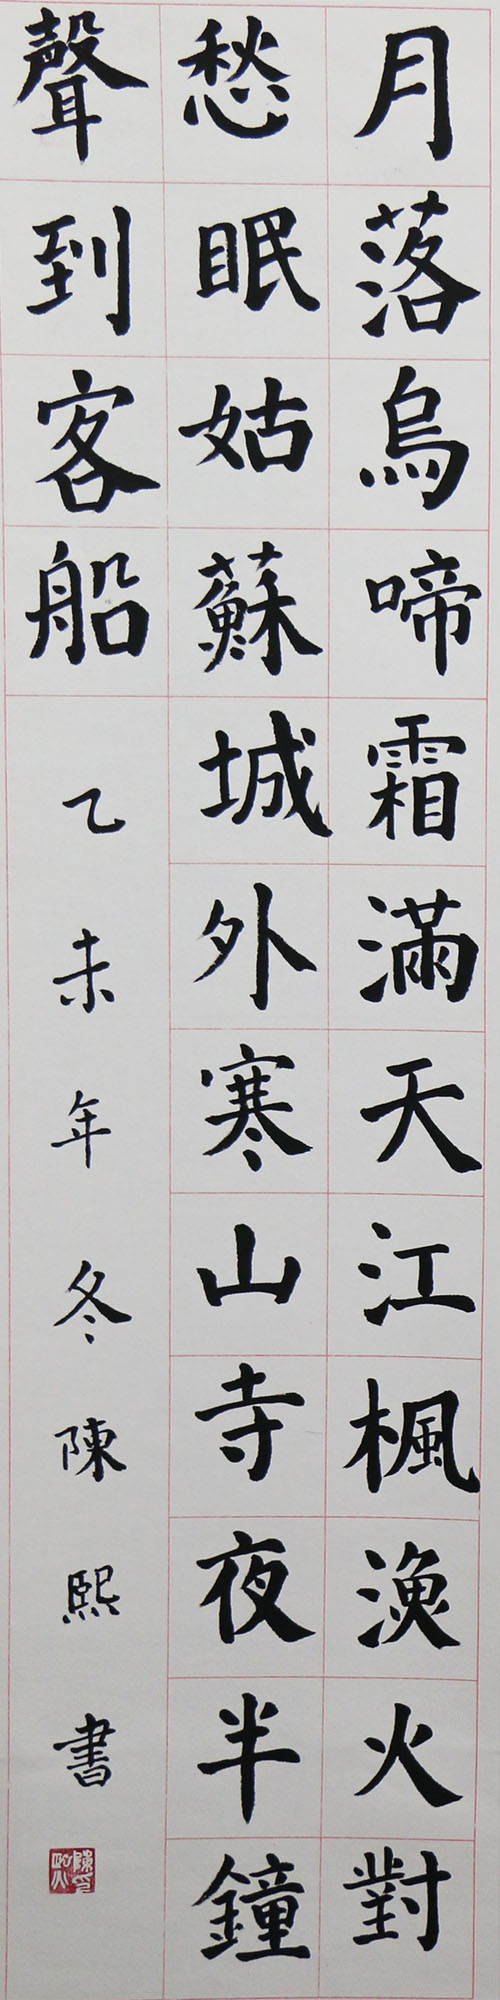 月落烏啼霜滿天江楓漁火對
愁眠姑蘇城外寒山寺夜半鐘
聲到客船
乙未年冬陳熙書